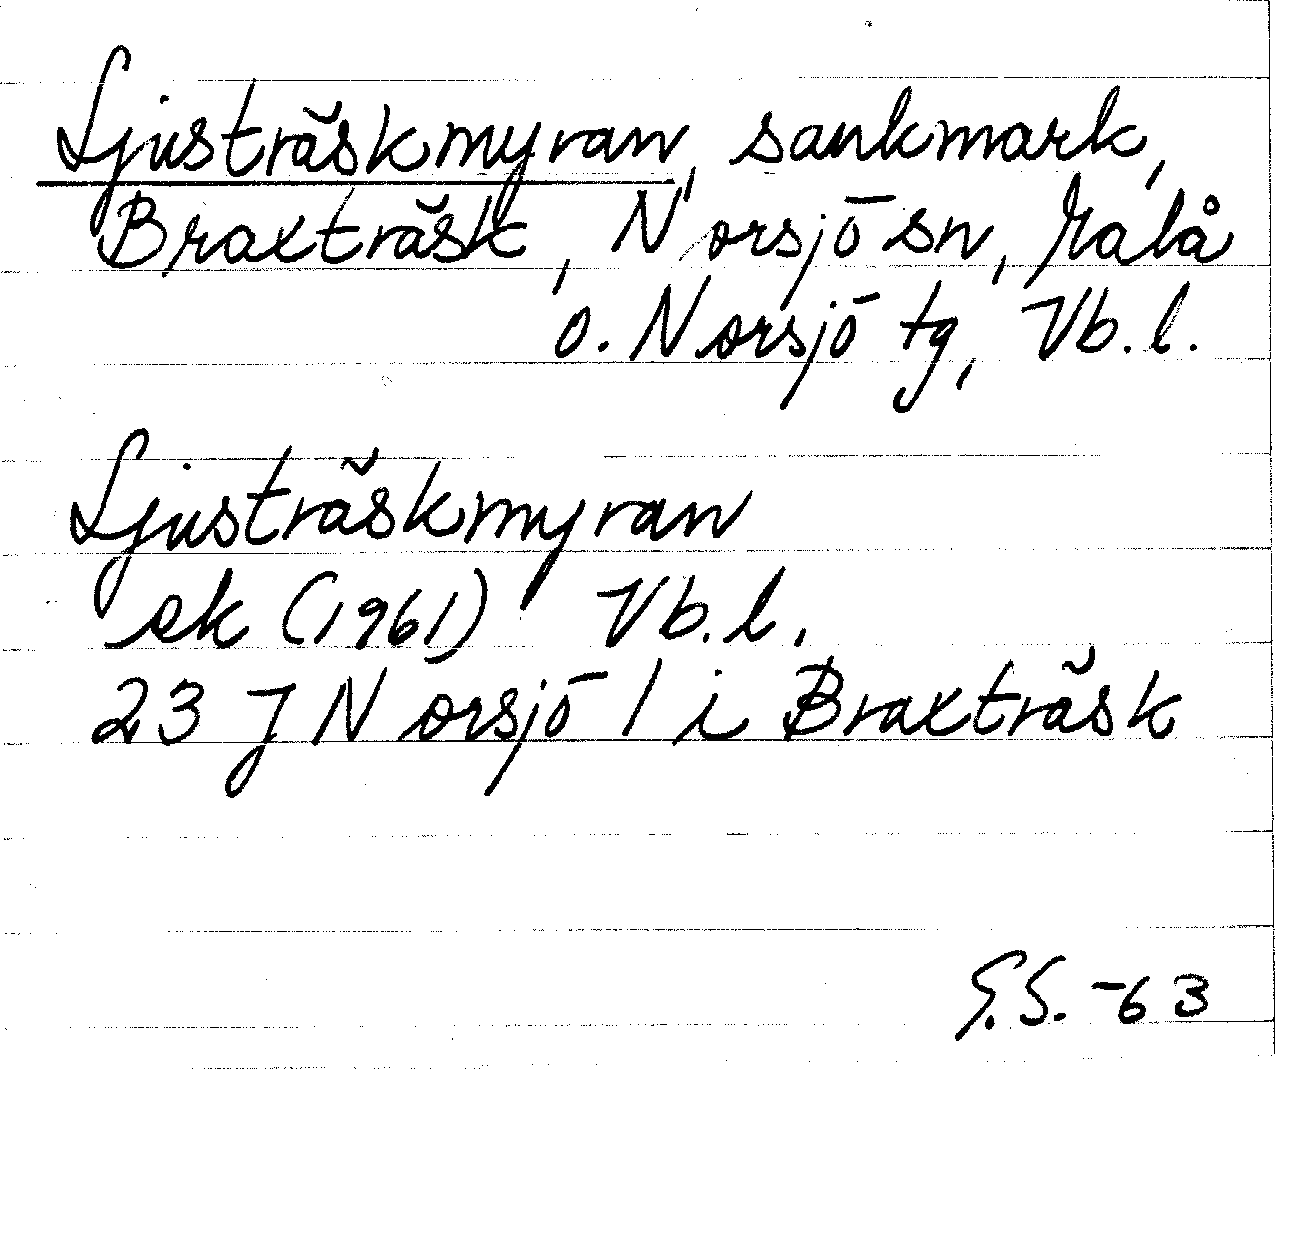 Ljusträskmyran, sankmark,
Braxträsk, Norsjö sn, Malå
o. Norsjö tg, Vb.l.
Ljusträskmyran
ek (1961) Vb.l.
23 J Norsjö / i Braxträsk
G.S. -63